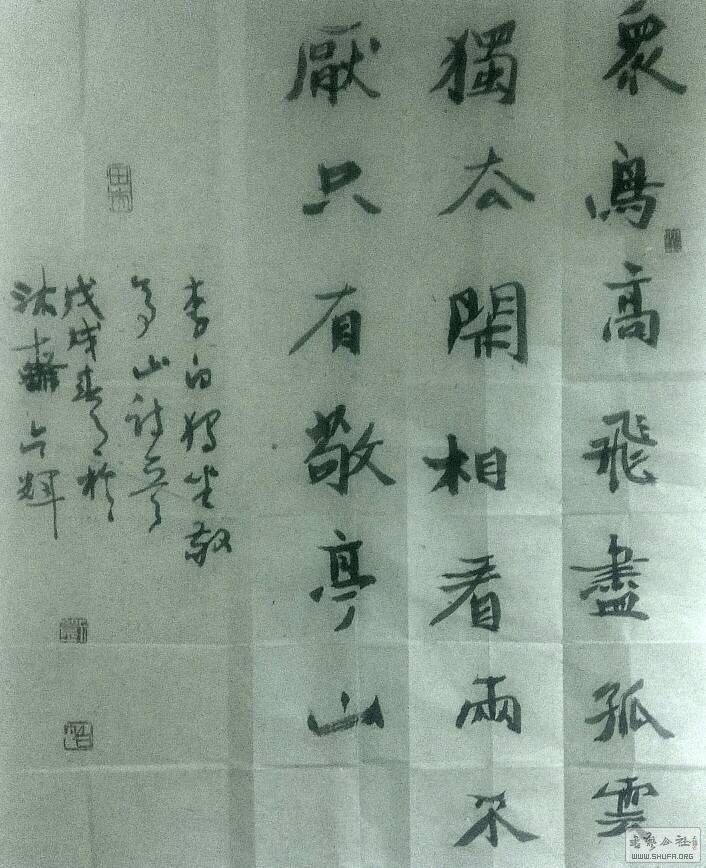 眾鳥高飛盡孤雲
獨去閑相看兩不
厭只有敬亭山
李白獨坐敬
亭山詩
戊戌春月於
沐
輝
書藝公社
WWW.SHUFA.ORG